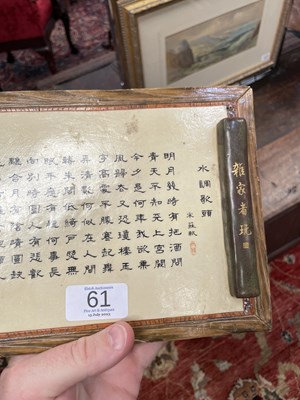 水調歌頭
宋 蘇軾
明月幾時有把酒問
青天不知天上宮闕
今夕是何年我欲乘
風歸去又恐瓊樓玉
宇高處不勝寒起舞
弄清影何似在人間
轉朱閣低綺戶照無
眠不應有恨何事長
向別時圓人有悲歡
離合月有陰晴圓缺
家 玩
61
Fine Art & Antiques